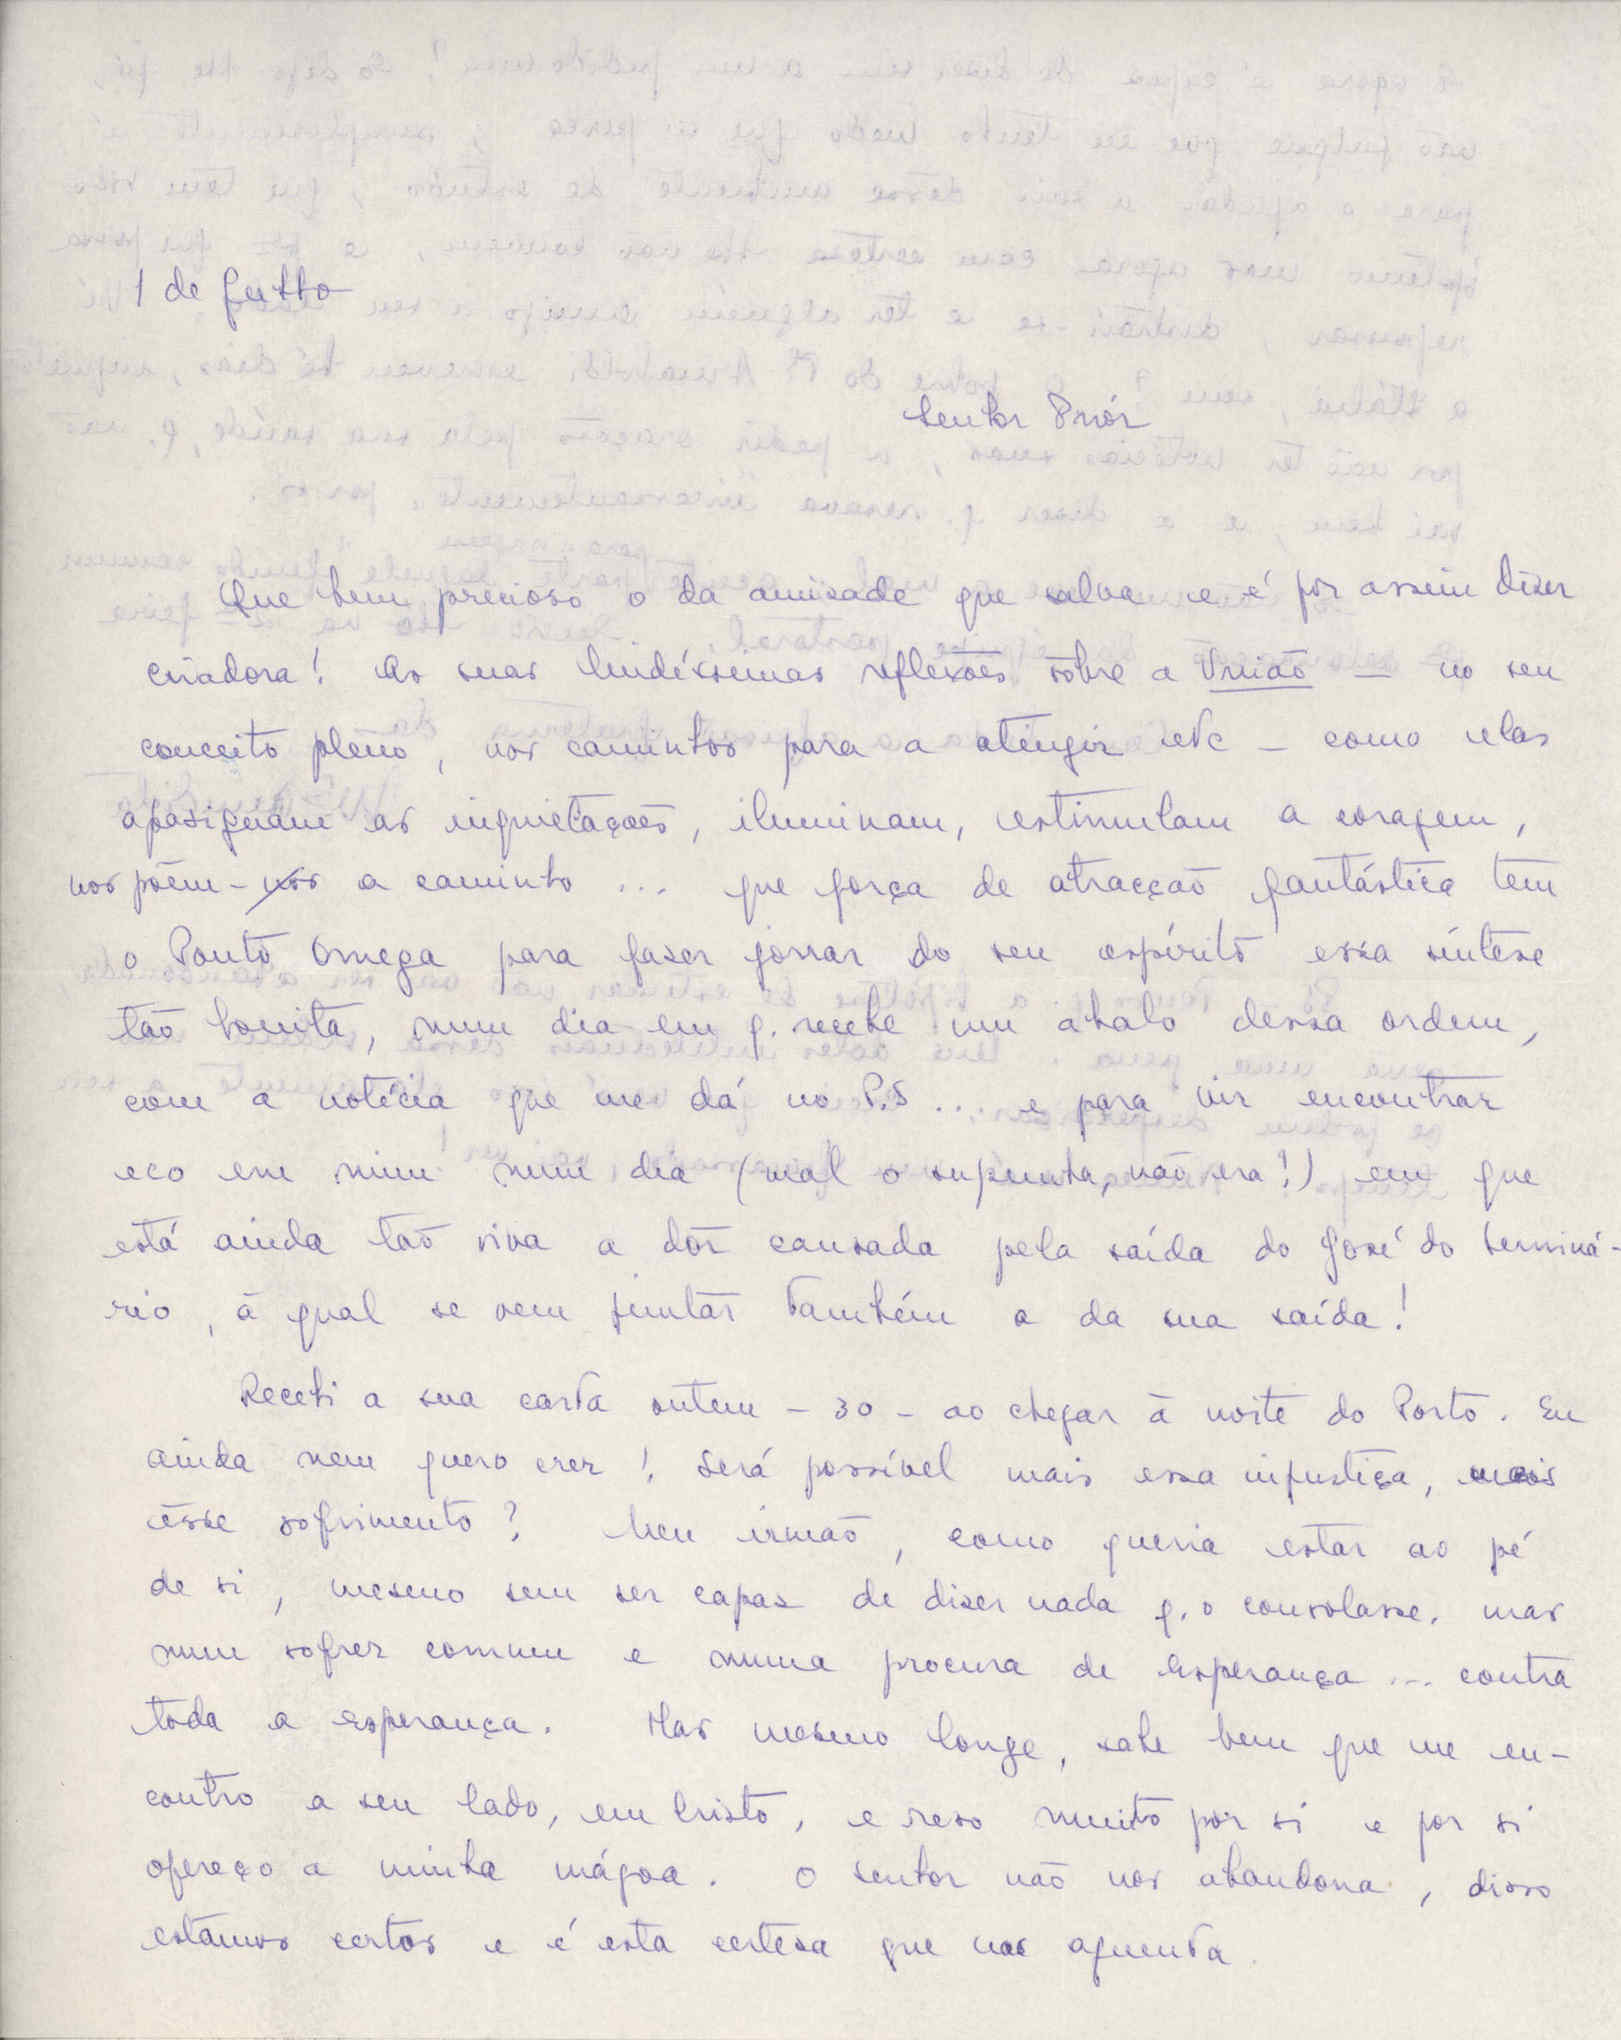 1 de Julho
Senhor Prior
Que bem precioso o da amisade que salva e é por assim dizer
criadora! As suas lindíssimas reflexões sôbre a União — no seu
conceito pleno, nos caminhos para a atingir etc — como elas
apasiguam as inquietações, iluminam, estimulam a coragem,
nos põem-nos a caminho ... que força de atracção fantástica tem
o Ponto Omega para fazer jorrar do seu espírito essa síntese
tão bonita, num dia em q. recebe um abalo dessa ordem,
com a notícia que me dá no P.S ... e para vir encontrar
eco em mim num dia (mal o supunha, não era?!) em que
está ainda tão viva a dôr causada pela saída do José do Seminá-
rio, à qual se vem juntar também a da sua saída!
Recebi a sua carta ontem - 30 - ao chegar à noite do Porto. Eu
ainda nem quero crer! Será possível mais essa injustiça, mais
êsse sofrimento? Meu irmão, como queria estar ao pé
de si, mesmo sem ser capaz de dizer nada q. o consolasse, mas
num sofrer comum e numa procura de esperança ... contra
toda a esperança. Mas mesmo longe, sabe bem que me en-
contro a seu lado, em Cristo, e rezo muito por si e por si
ofereço a minha mágoa. O Senhor não nos abandona, disso
estamos certos e é esta certeza que nos aguenta.